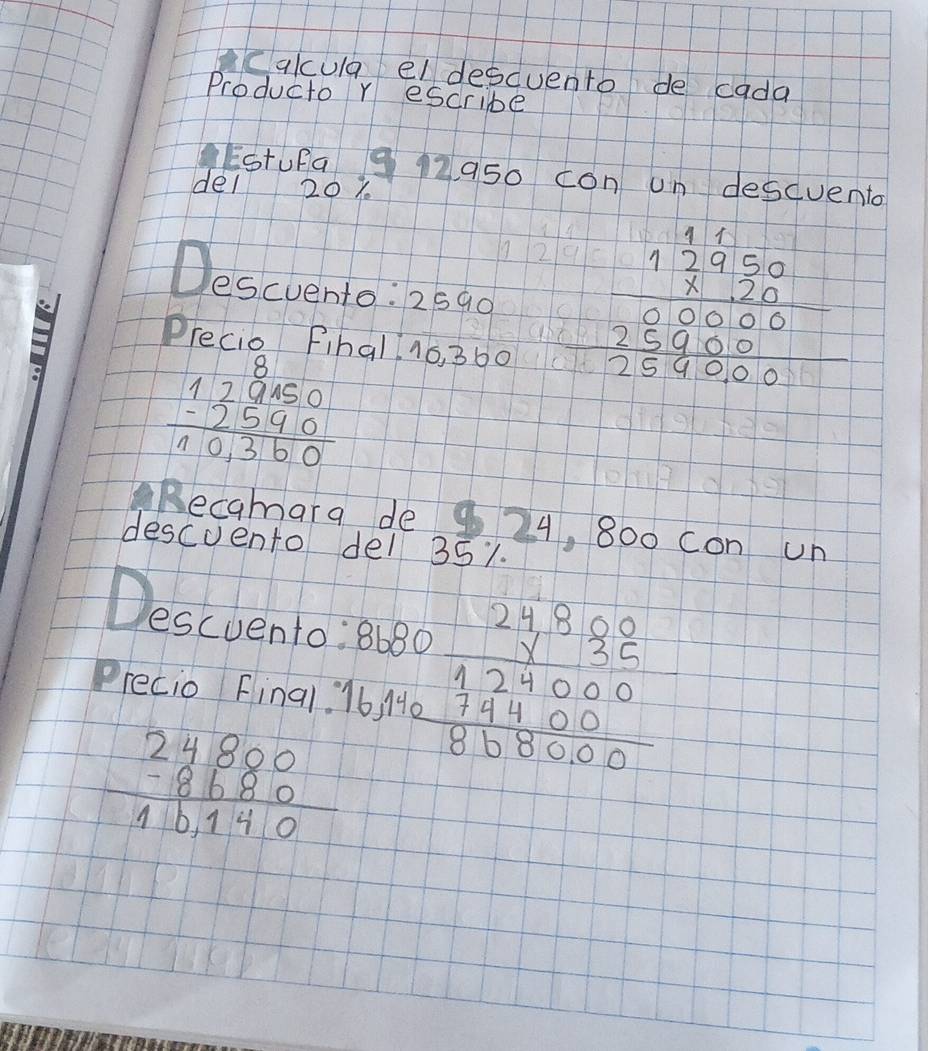 Calcula el descuento de cada
Producto y escribe
Estufa $ 12,950 con un descuento
del 20%
Descuento: 2590
Precio Final: 10,360
1 1
12950
x .20
00000
25900
2590.00
8
129150
-2590
10,360
Recamara de $ 24,800 con un
descuento del 35%
Descuento: 8680
Precio Final: 16,140
24800
x 35
124000
74400
8680.00
24800
-8680
16,140